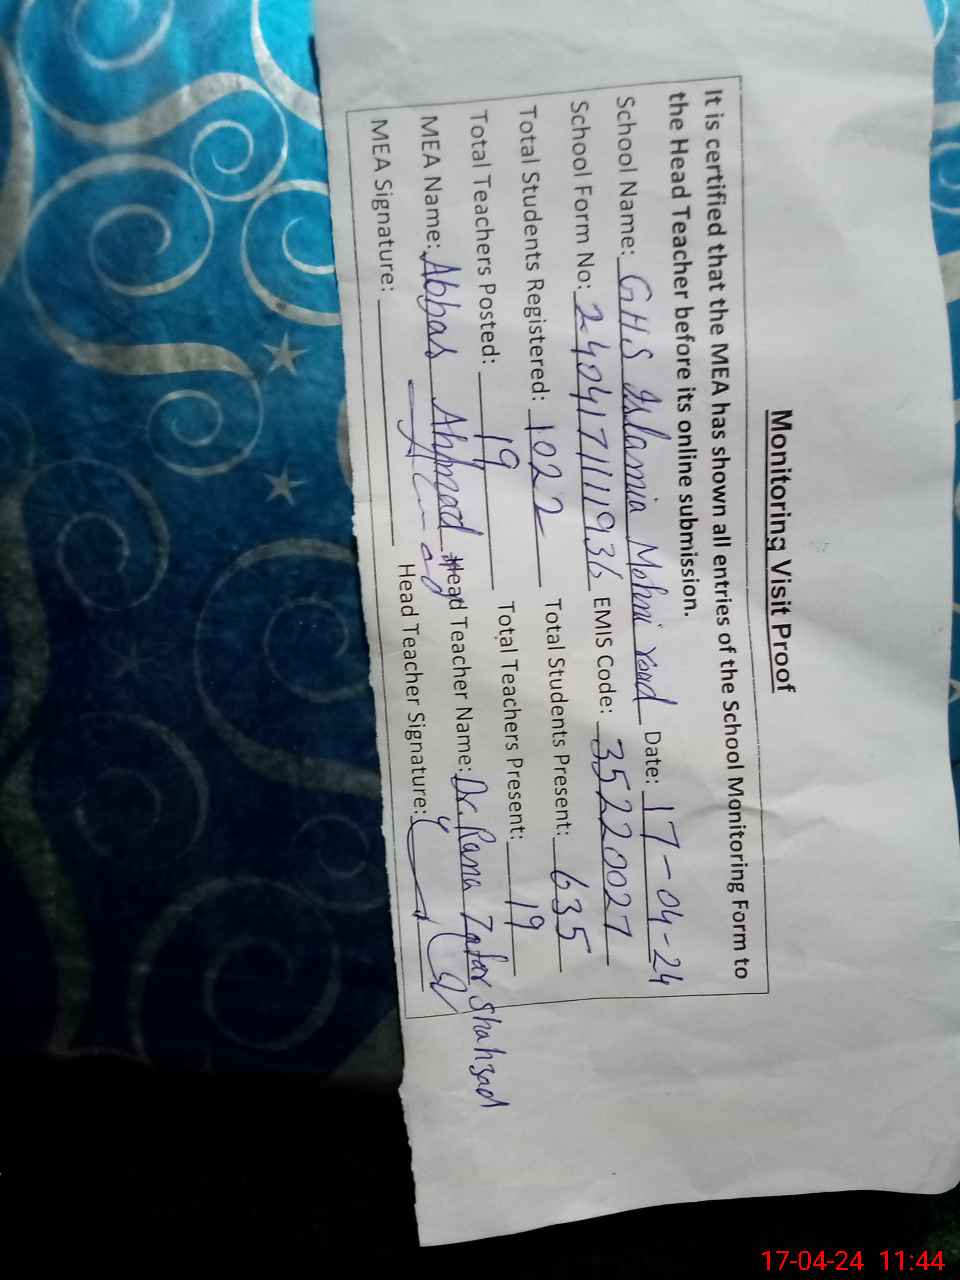 Monitoring Visit Proof
It is certified that the MEA has shown all entries of the School Monitoring Form to
the Head Teacher before its online submission.
School Name: GHS Islamia Mohni road Date: 17-04-24
School Form No: 2404171111936 EMIS Code: 35220027
Total Students Registered: 1022 Total Students Present: 635
Total Teachers Posted: 19 Total Teachers Present: 19
MEA Name: Abbas Ahmad Head Teacher Name: Dr. Rana Zafar Shahzad
MEA Signature: Head Teacher Signature:
17-04-24 11:44